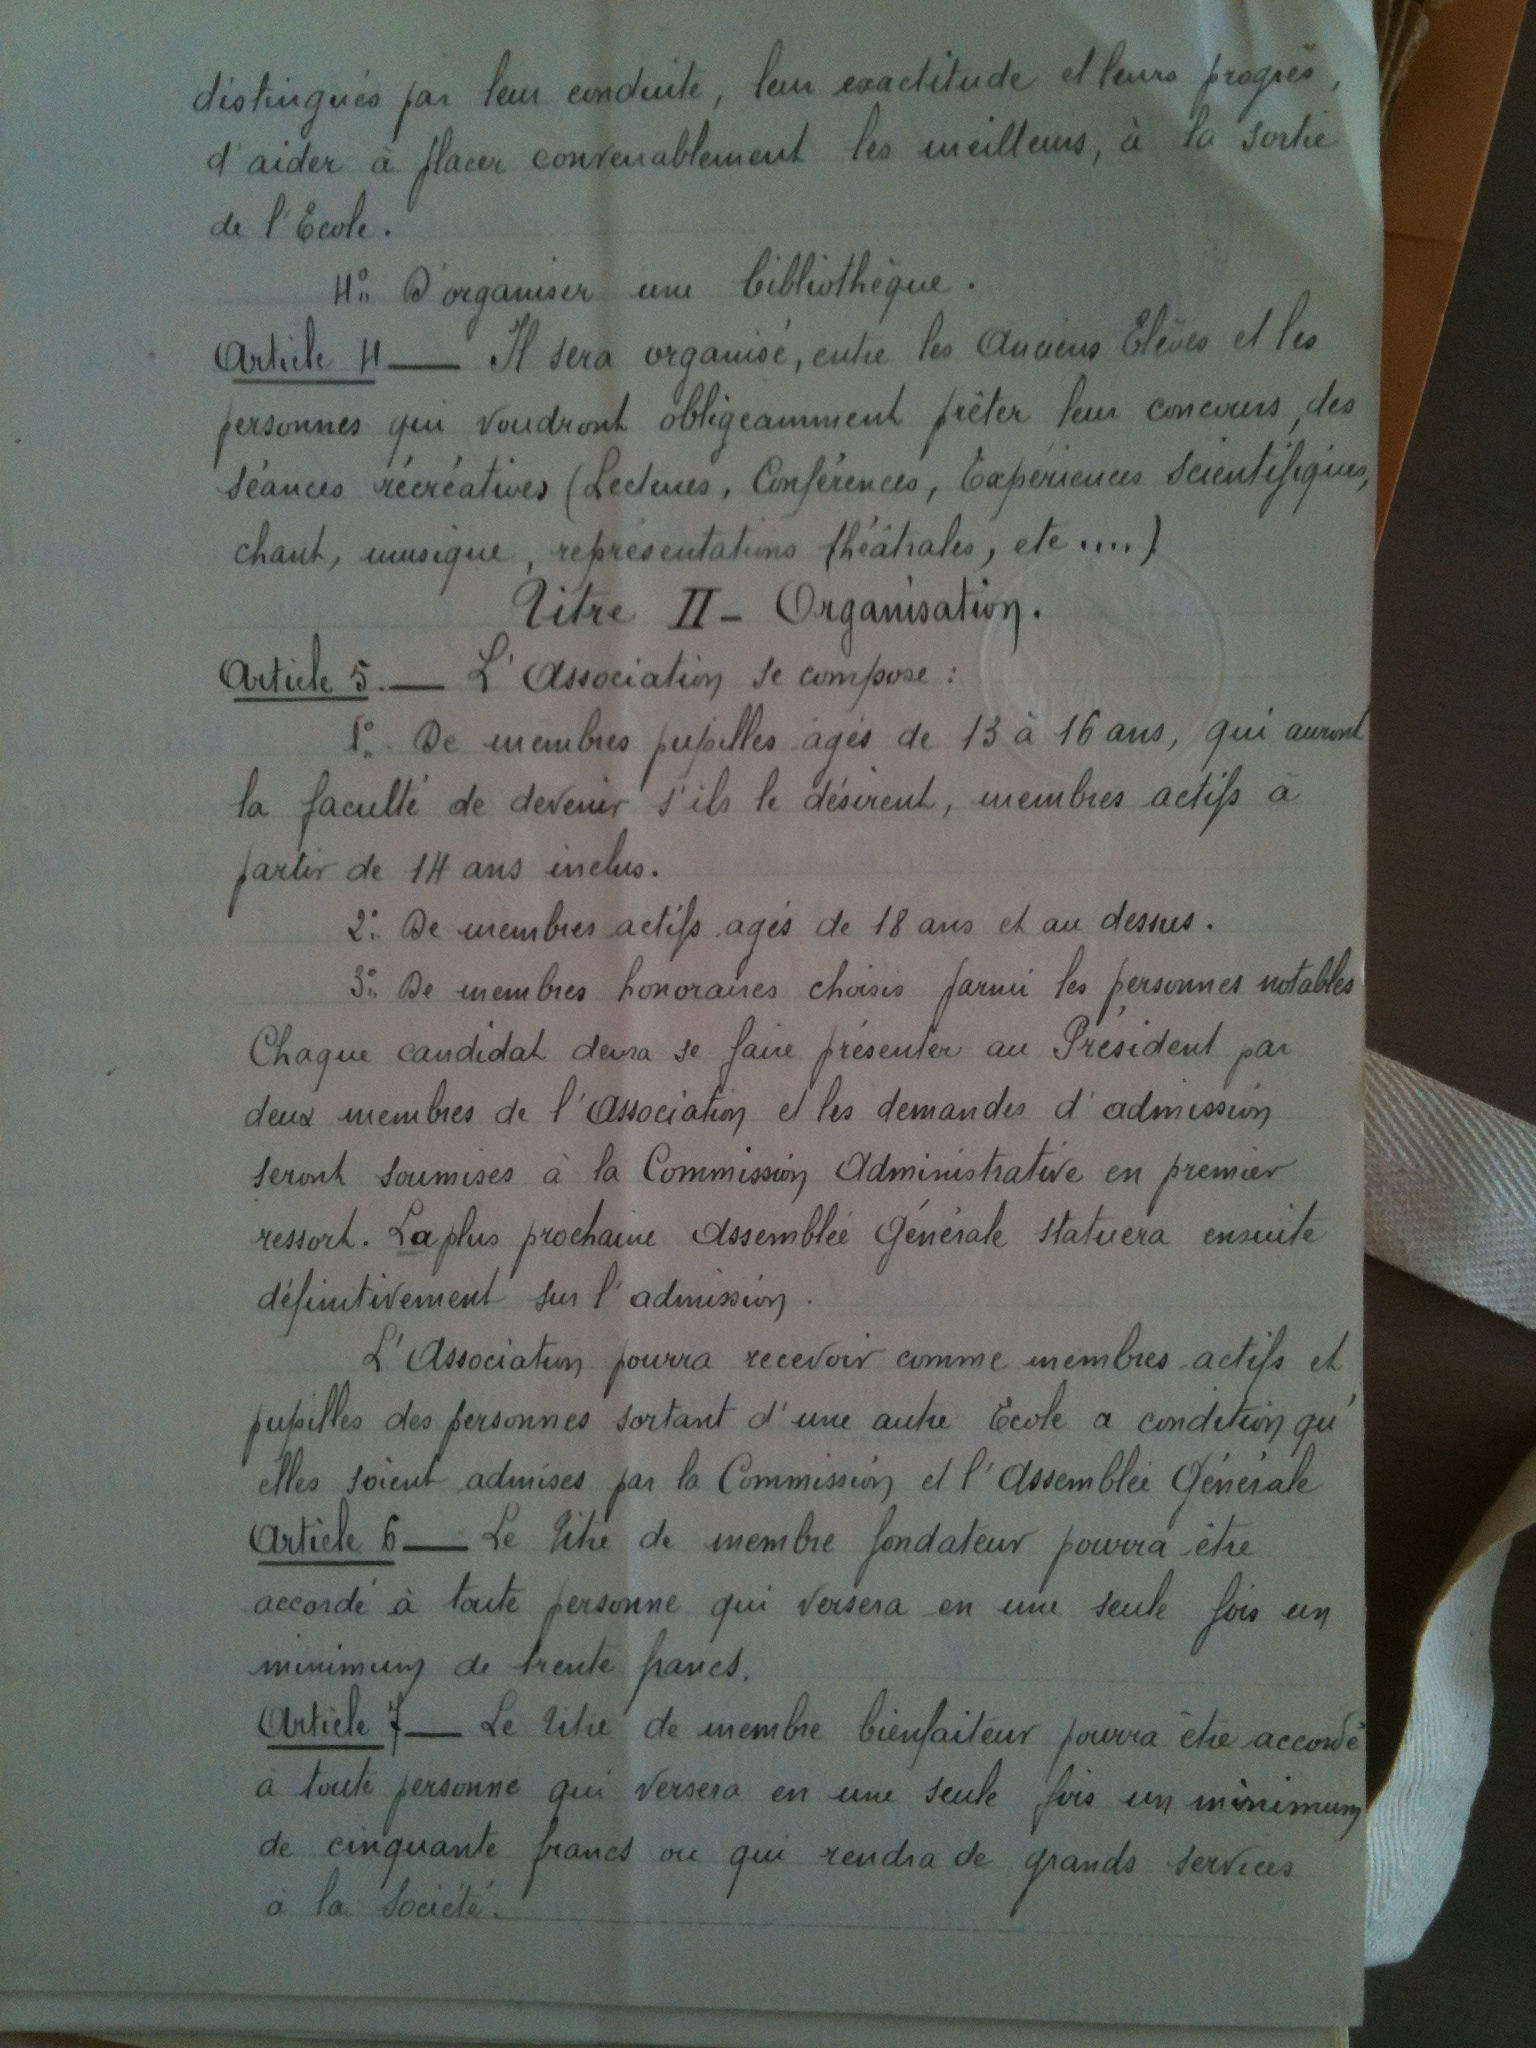 distingués par leur conduite, leur exactitude et leurs progrès,
d'aider à placer convenablement les meilleurs, à la sortie
de l'Ecole.
4° D'organiser une bibliothèque.
Article 4 — Il sera organisé, entre les Anciens Elèves et les
personnes qui voudront obligeamment prêter leur concours, des
séances récréatives (Lectures, Conférences, Expériences scientifiques,
chant, musique, représentations théâtrales, etc ....)
Titre II - Organisation.
Article 5. — L'Association se compose :
1° De membres pupilles âgés de 13 à 16 ans, qui auront
la faculté de devenir s'ils le désirent, membres actifs à
partir de 14 ans inclus.
2° De membres actifs agés de 18 ans et au dessus.
3° De membres honoraires choisis parmi les personnes notables
Chaque candidat devra se faire présenter au Président par
deux membres de l'Association et les demandes d'admission
seront soumises à la Commission Administrative en premier
ressort. La plus prochaine Assemblée Générale statuera ensuite
définitivement sur l'admission.
L'Association pourra recevoir comme membres actifs et
pupilles des personnes sortant d'une autre Ecole a condition qu'
elles soient admises par la Commission et l'Assemblée Générale
Article 6 — Le Titre de membre fondateur pourra être
accordé à toute personne qui versera en une seule fois un
minimum de trente francs.
Article 7 — Le Titre de membre bienfaiteur pourra être accordé
à toute personne qui versera en une seule fois un minimum
de cinquante francs ou qui rendra de grands services
à la Société.